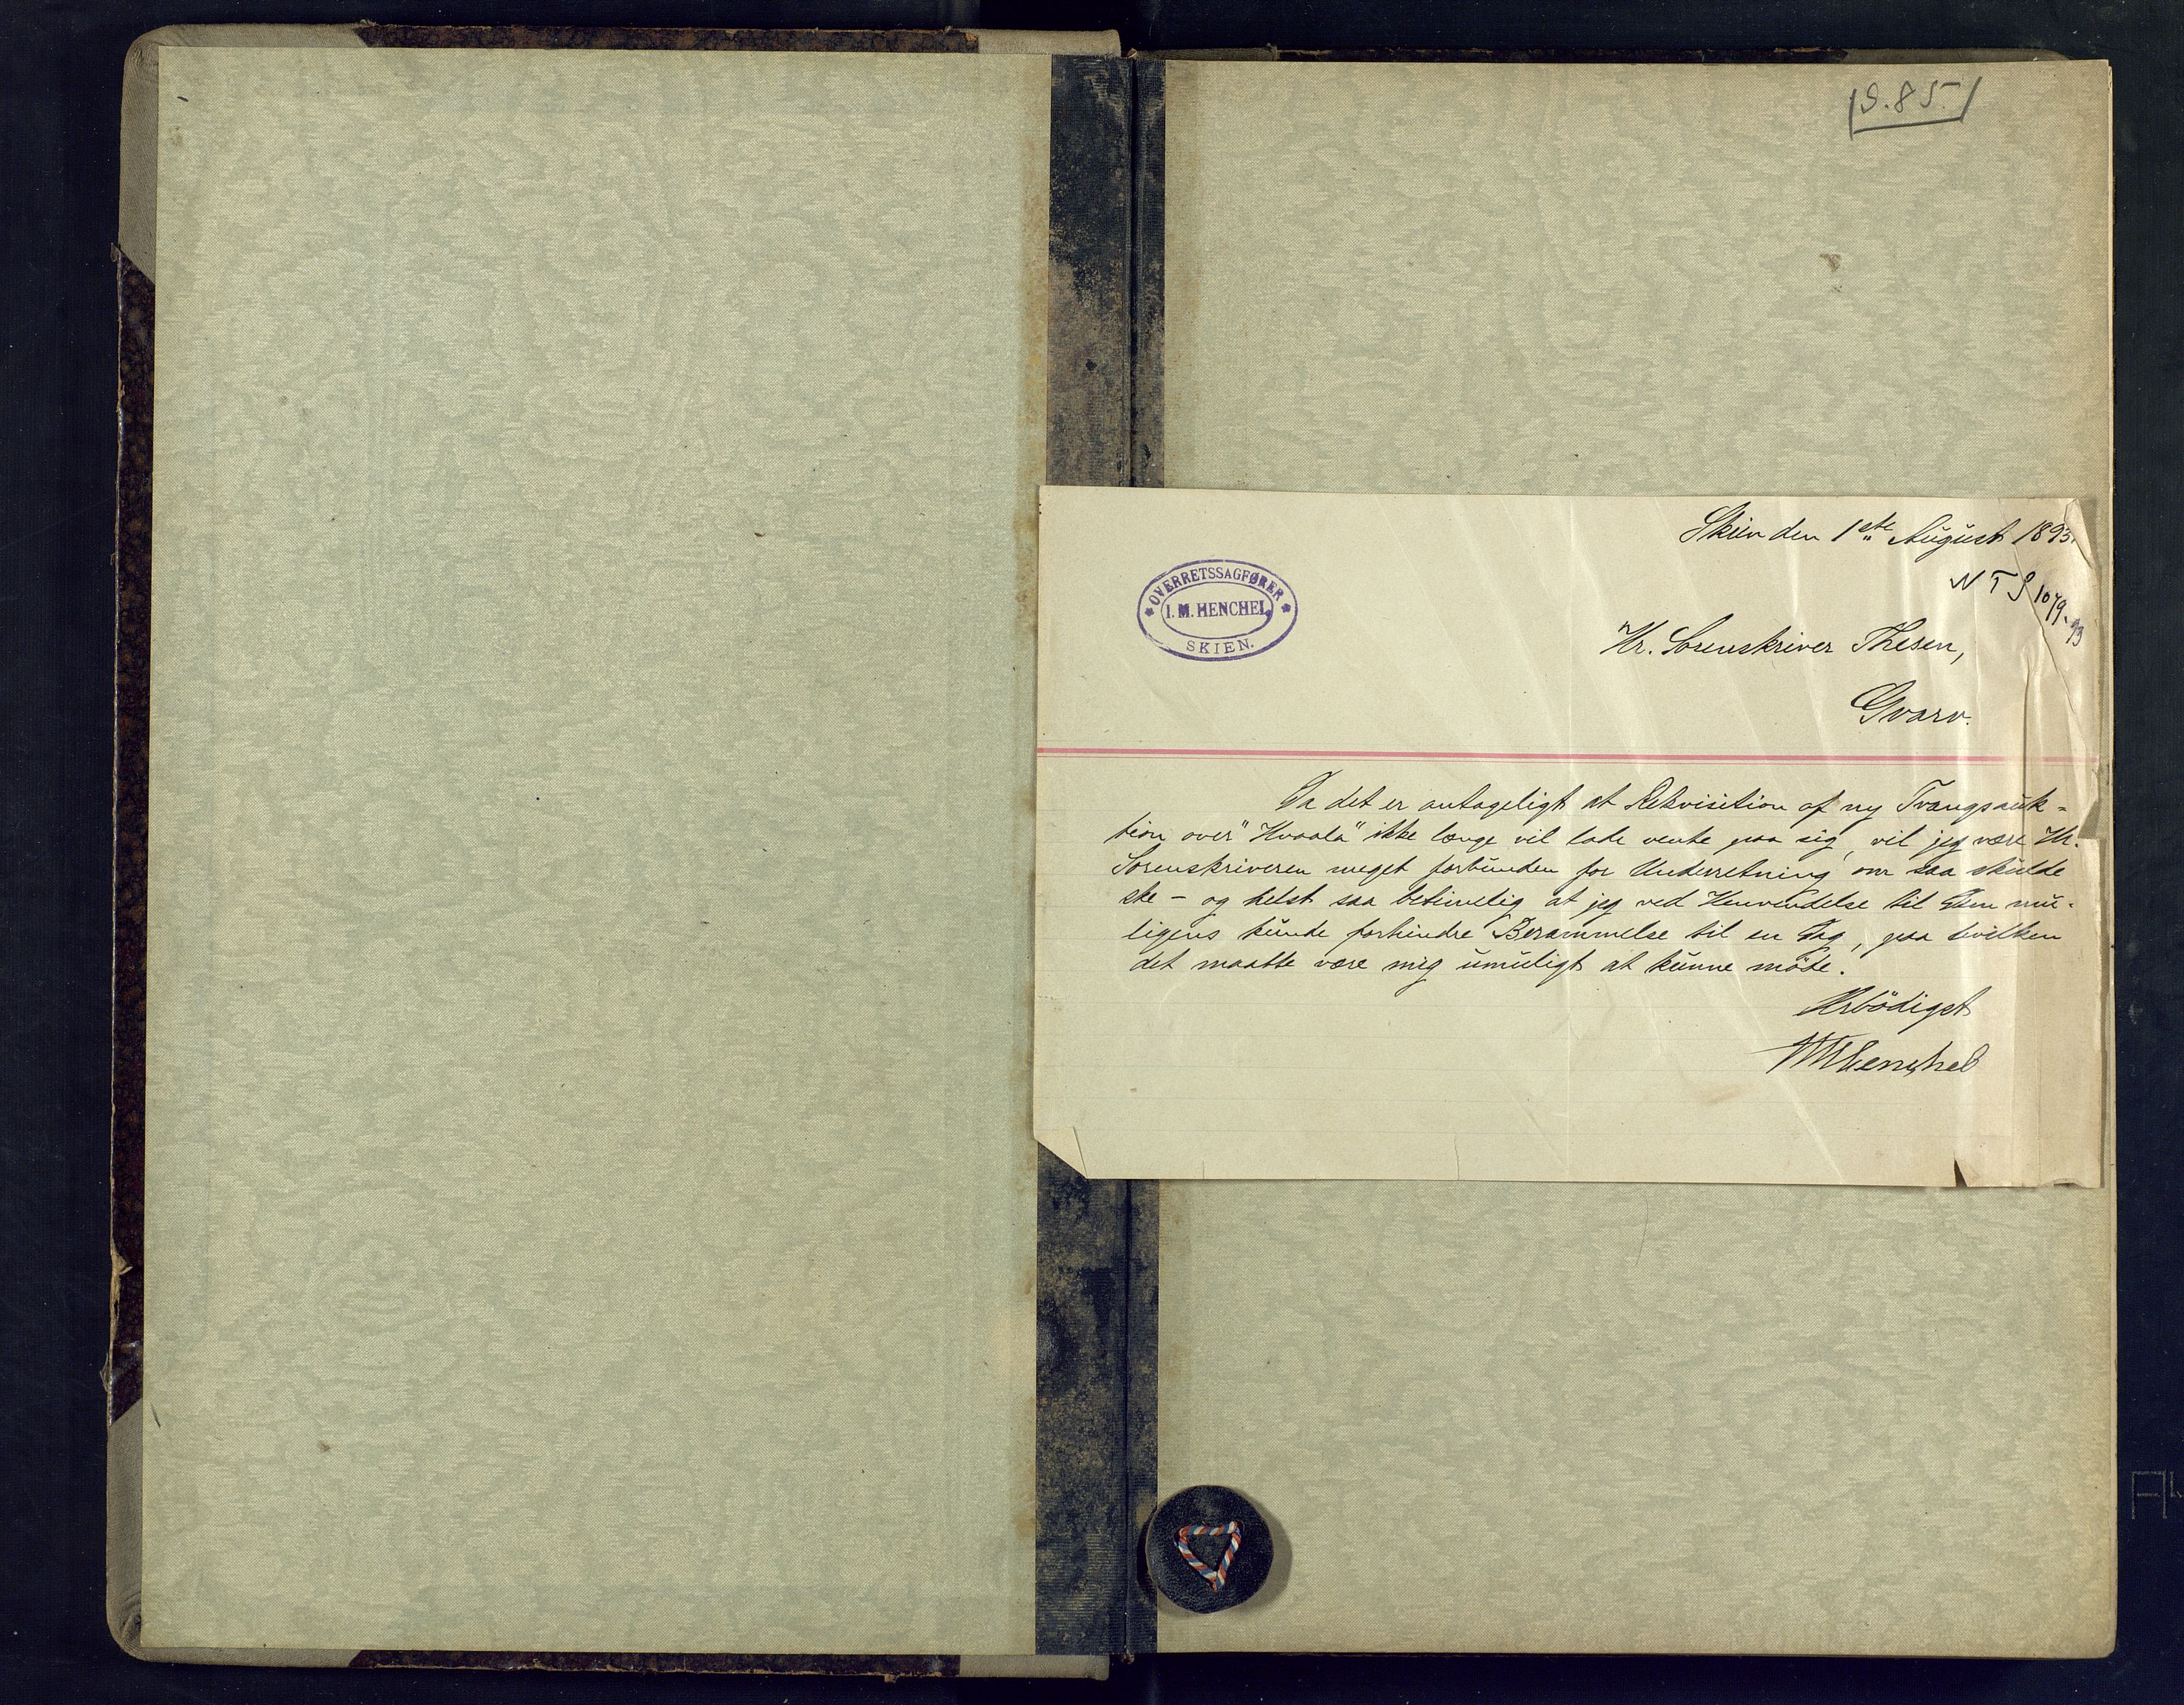 S. 85.
Skien den 1ste August 1893.
N T J 1079-93
OVERRETSSAGFØRER
I. M. HENCHEL
SKIEN.
Hr. Sorenskriver Thesen,
Gvarv.
Da det er antageligt at Rekvisition af ny Tvangsauk-
tion over "Kvaala" ikke længe vil lade vente paa sig, vil jeg være Hr.
Sorenskriveren meget forbunden for Underretning om saa skulde
ske - og helst saa betimelig at jeg ved Henvendelse til Dem mu-
ligens kunde forhindre Berammelse til en Dag, paa hvilken
det maatte være mig umuligt at kunne möde.
Ærbödigst
IMHenchel